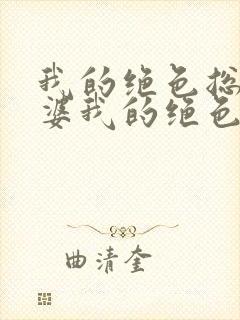 我的绝色总
婆我的绝色
曲清奎